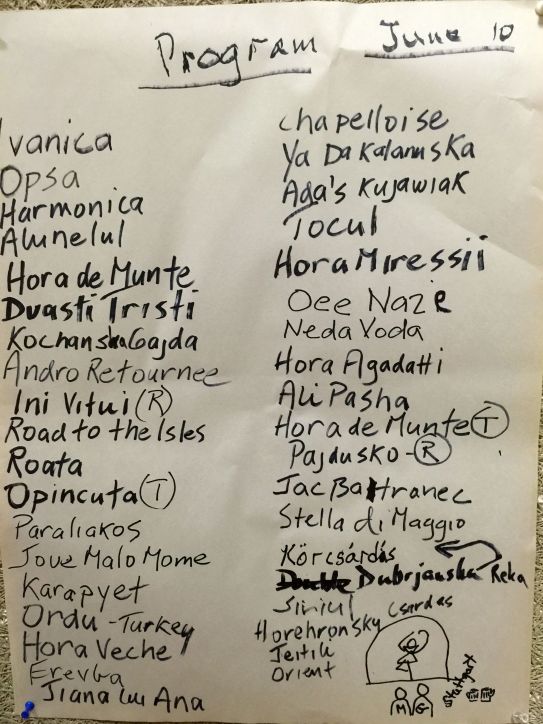 Program June 10
Ivanica
Opsa
Harmonica
Alunelul
Hora de Munte
Dvasti Tristi
Kochanska Gajda
Andro Retournee
Ini Vitui (R)
Road to the Isles
Roata
Opincuta (T)
Paraliakos
Jove Malo Mome
Karapyet
Ordu - Turkey
Hora Veche
Erevba
Jiana lui Ana
Chapelloise
Ya Da Kalanuska
Ada's Kujawiak
Tocul
Hora Miressii
Oee Nazie
Neda Voda
Hora Agadatti
Ali Pasha
Hora de Munte (T)
Pajdusko - (R)
Jac Bahtranec
Stella di Maggio
Körcsárdás
Dubrjanska Reka
Siriul
Horehronsky Csardas
Jeitili
Orient
Stuttgart
M G